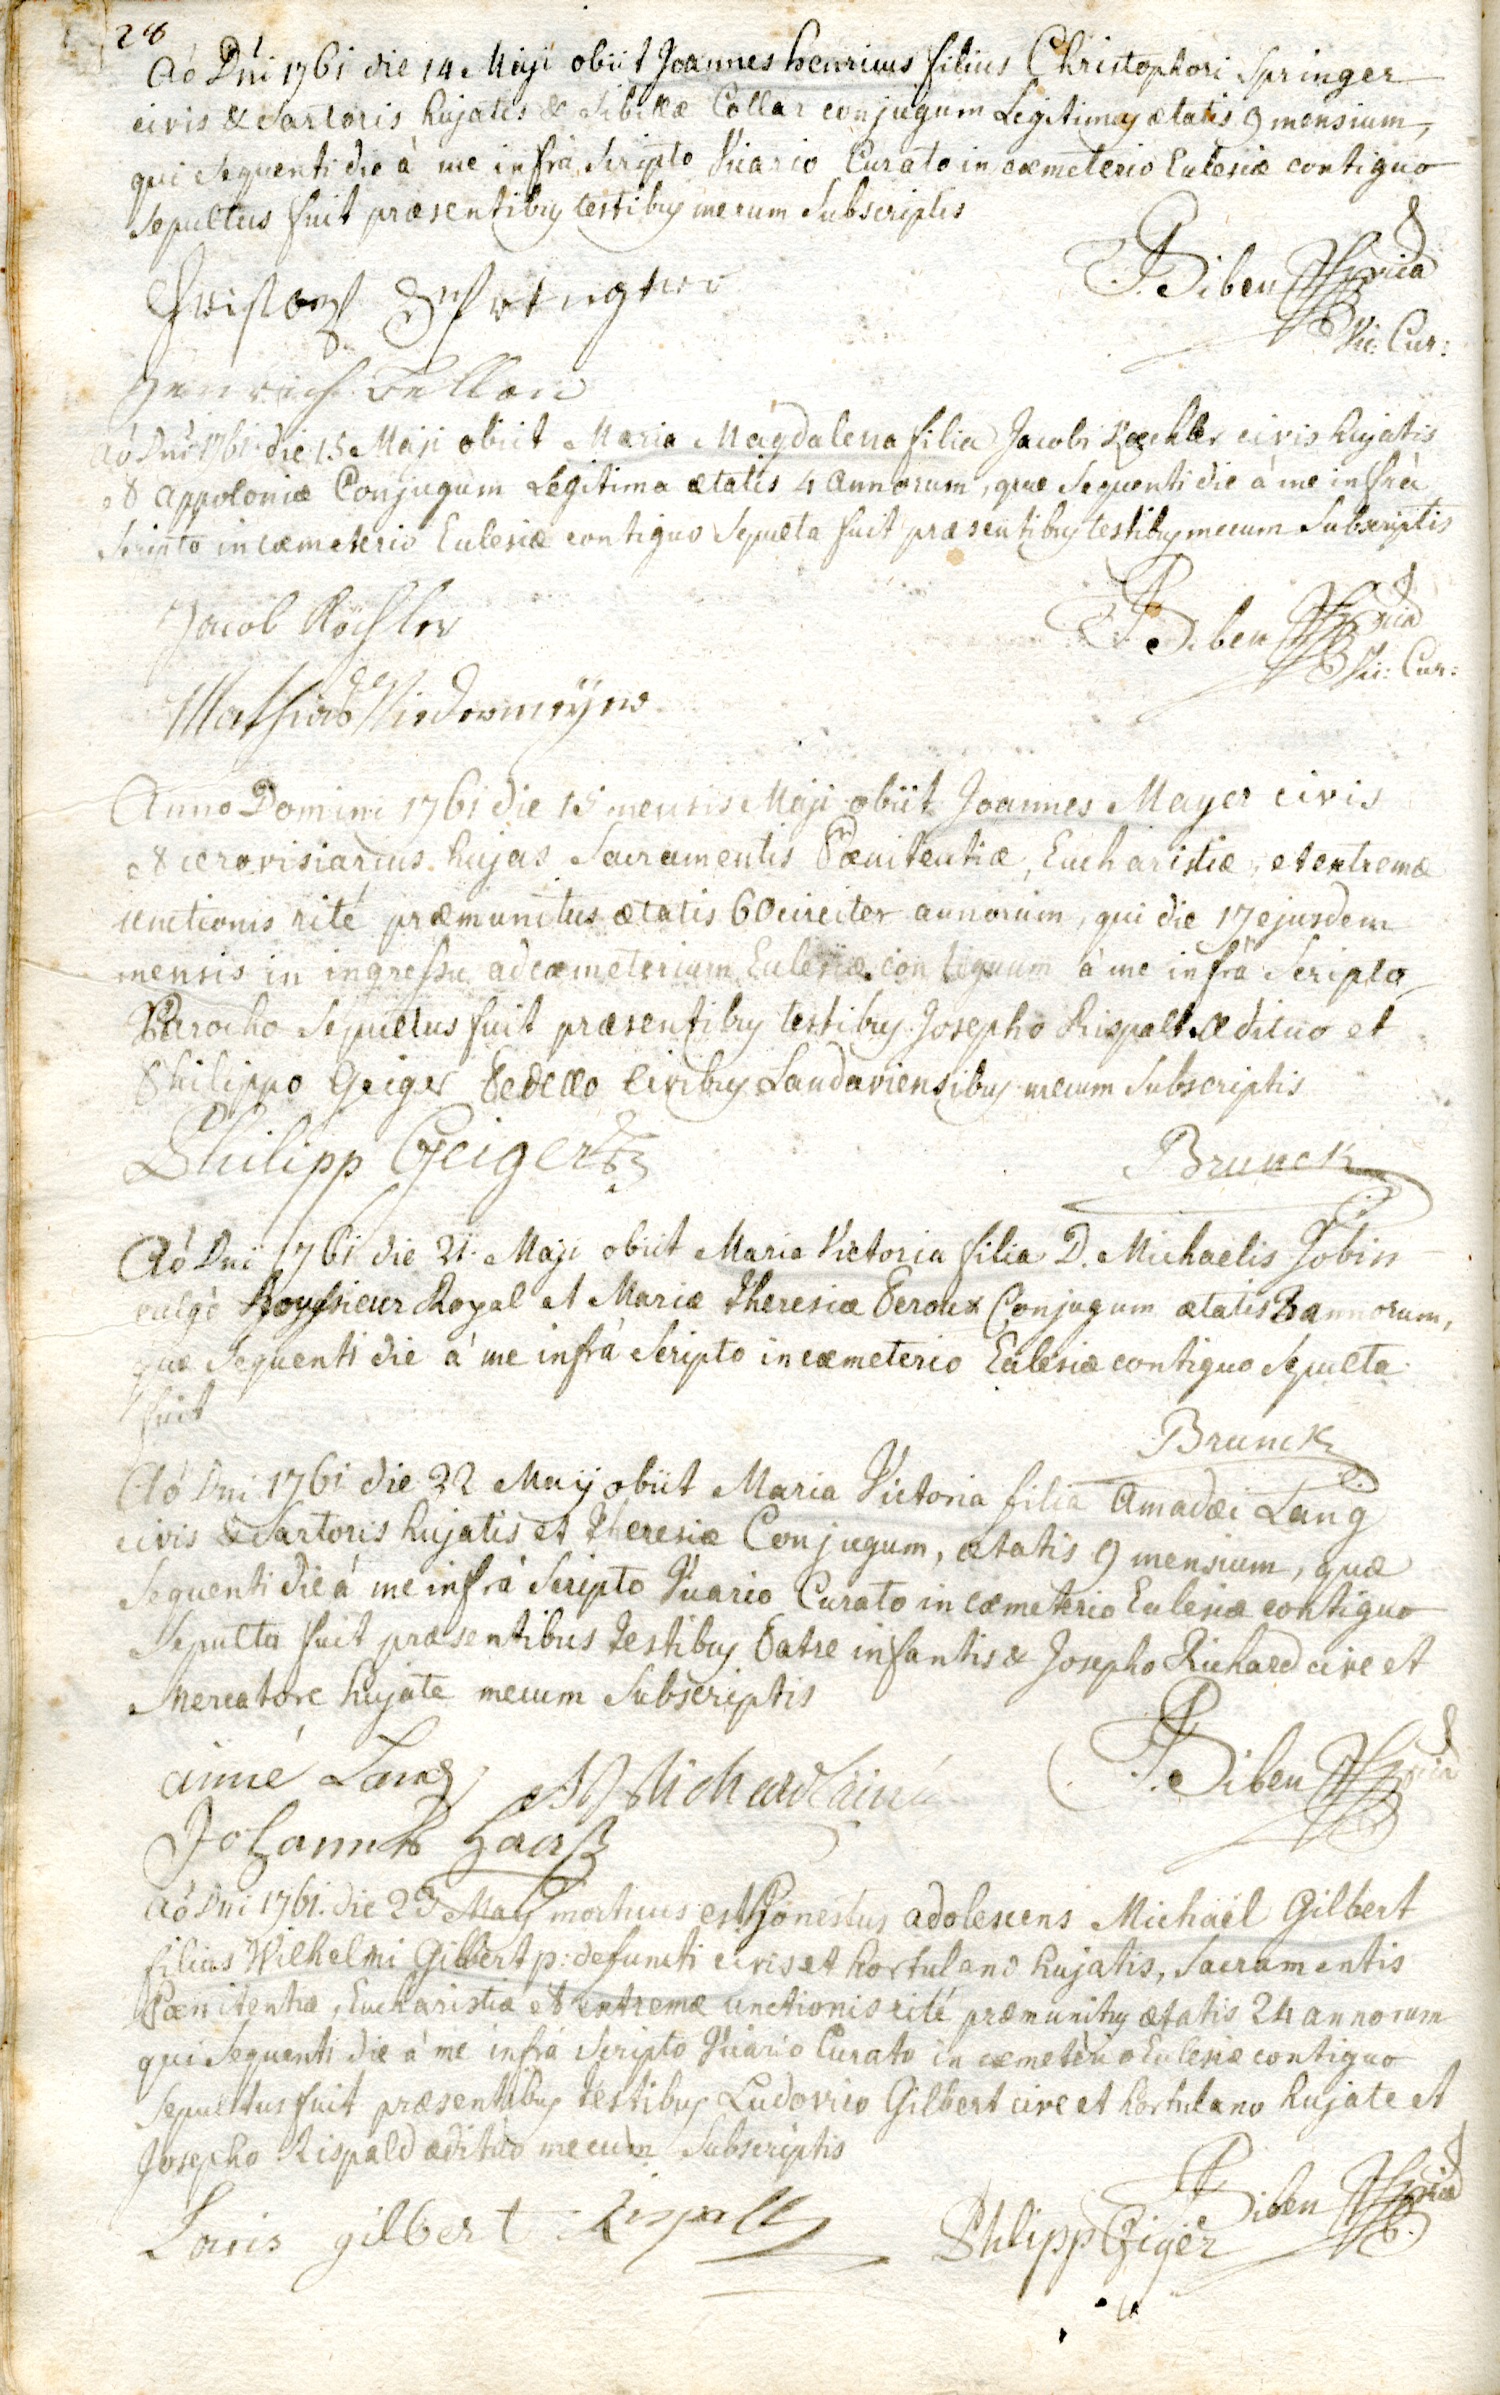 28
Aó Dńi 1761 die 14 Maji obiit Joannes henricus filius Christophori Springer
civis & Sartoris hujatis & Sibillæ Collar conjugum Legitimg ætatis 9 mensium,
qui sequenti die à me infrà scripto Vicario Curato in cæmeterio Eclesiæ contiguo
sepultus fuit præsentibg testibg mecum Subscriptis
P. Siben
Vic: Cur:
Aó Dni 1761 die 15 Maji obiit Maria Magdalena filia Jacobi Kæchler civis hujatis
& appoloniæ Conjugum Legitima ætatis 4 annorum, quæ sequenti die à me infrà
scripto in cæmeterio Eclesiæ contiguo sepulta fuit præsentibg testibg mecum Subscriptis
Jacob Köchler
P. Siben
Vic: Cur:
Mathias Niedermeÿer
Anno Domini 1761 die 15 mensis Maji obiit Joannes Mayer civis
& cerevisiarius hujas Sacramentis Pœnitentiæ, Eucharistiæ, et extremæ
unctionis rité præmunitus ætatis 60 circiter annorum, qui die 17 ejusdem
mensis in ingressu ad cæmeterium Eclesiæ contiguum à me infrà Scripto
Parocho sepultus fuit præsentibg testibg Josepho Rispalt ædituo et
Philippo Geiger Pedello Civibg Landaviensibg mecum Subscriptis
Philipp Geiger
Brunck
Aó Dni 1761 die 21 Maji obiit Maria Victoria filia D. Michaelis Jobin
vulgò Royssieur Royal et Mariæ Theresiæ Peroux Conjugum ætatis 3 annorum,
quæ sequenti die à me infrà Scripto in cæmeterio Eclesiæ contiguo sepulta
fuit
Brunck
Aó Dni 1761 die 22 Maij obiit Maria Victoria filia Amadæi Lang
civis & Sartoris hujatis et Theresiæ Conjugum, ætatis 9 mensium, quæ
sequenti die à me infrà Scripto Vicario Curato in cæmeterio Eclesiæ contiguo
sepulta fuit præsentibus testibg Patre infantis & Josepho Richard cive et
Mercatore hujate mecum Subscriptis
aimé Lang
Richard ainé
P. Siben
Johannes Haaß
Aó Dni 1761 die 23 Maij mortuus est honestus adolescens Michaël Gilbert
filius Wilhelmi Gilbert p: defuncti civis et hortulano hujatis, Sacramentis
Pœnitentiæ, Eucharistiæ et extremæ unctionis rité præmunitg ætatis 24 annorum
qui sequenti die à me infrà Scripto Vicario Curato in cæmeterio Eclesiæ contiguo
sepultus fuit præsentibg testibg Ludovico Gilbert cive et hortulano hujate et
Josepho Rispald ædituo mecum Subscriptis
Louis gilbert
Rispalt
Phlipp Giger
P. Siben